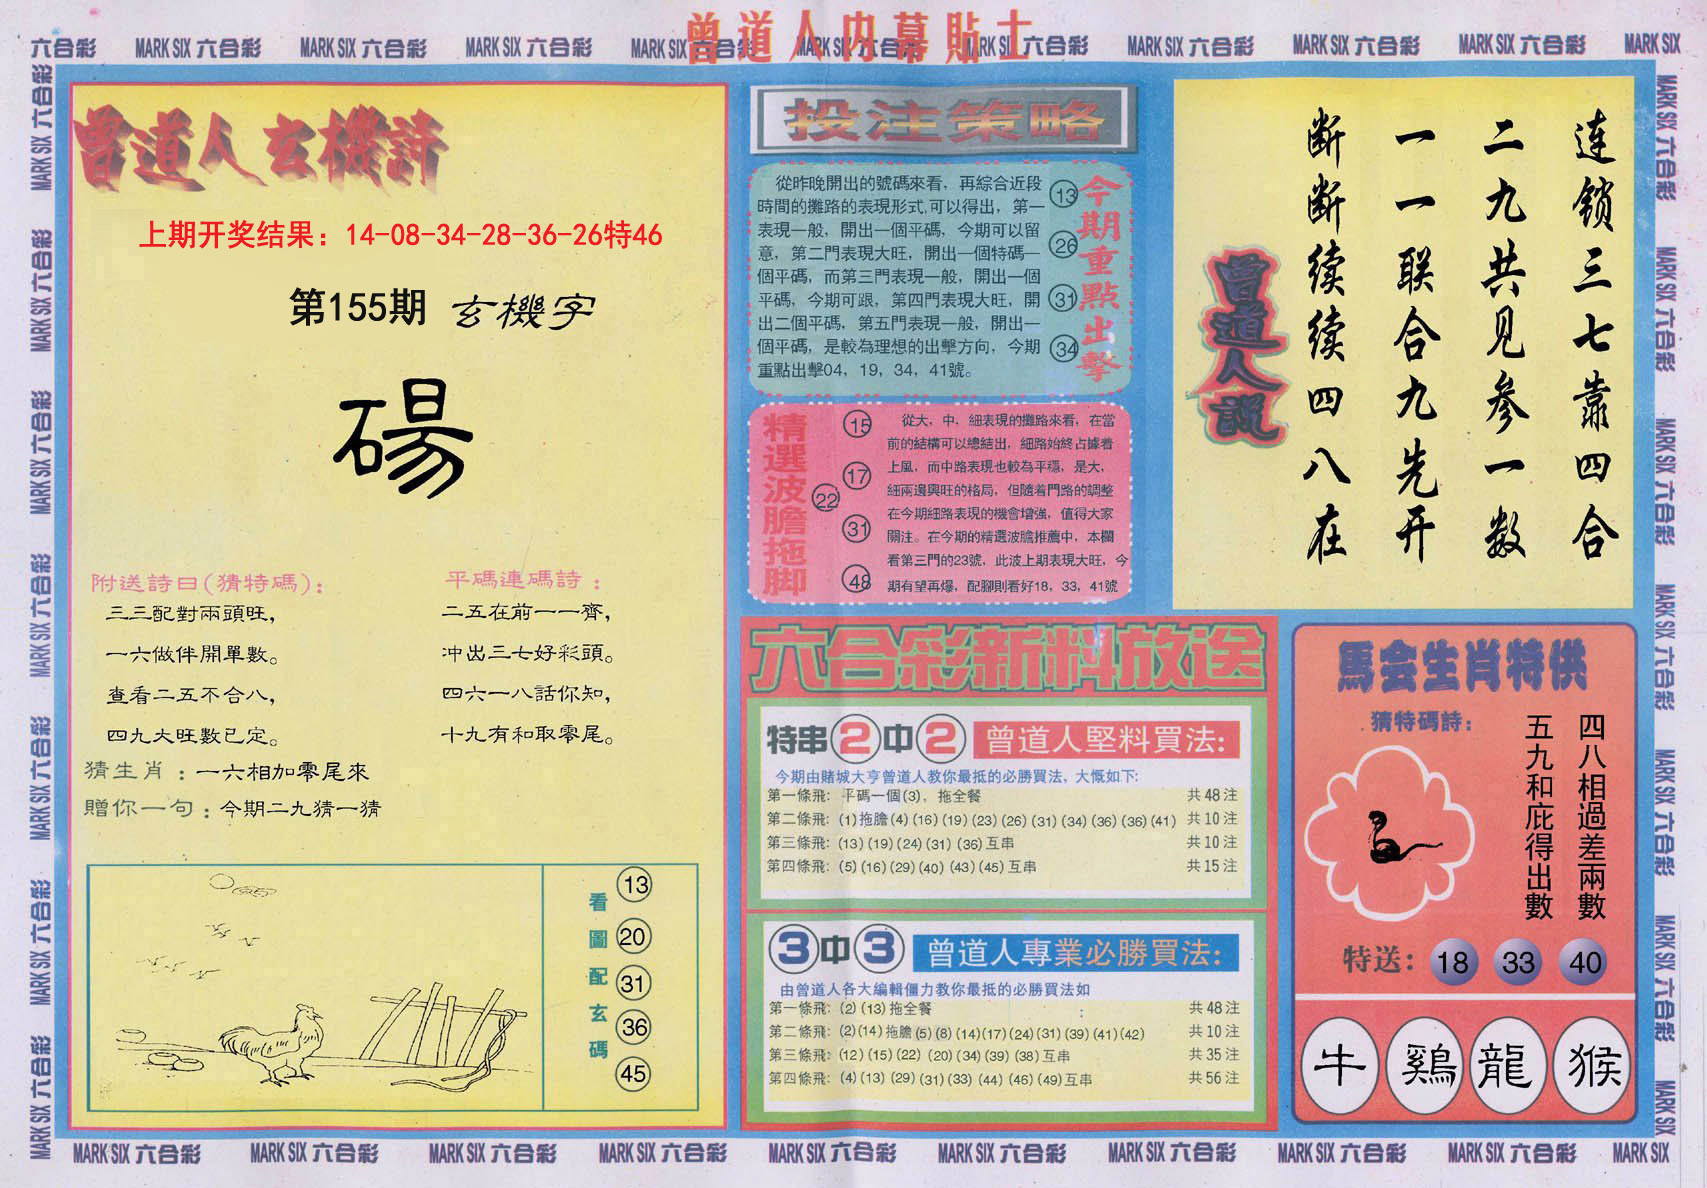 曾道人内幕貼士
六合彩 MARK SIX 六合彩 MARK SIX 六合彩 MARK SIX 六合彩 MARK SIX 六合彩 MARK SIX 六合彩 MARK SIX 六合彩 MARK SIX 六合彩 MARK SIX 六合彩 MARK SIX 六合彩 MARK SIX
曾道人玄機詩
上期开奖结果：14-08-34-28-36-26特46
第155期 玄機字
碭
附送詩曰(猜特碼)：
三三配對兩頭旺，
一六做伴開單數。
查看二五不合八，
四九大旺數已定。
平碼連碼詩：
二五在前一一齊，
冲出三七好彩頭。
四六一八話你知，
十九有和取零尾。
猜生肖：一六相加零尾來
贈你一句：今期二九猜一猜
看圖配玄碼
13
20
31
36
45
投注策略
從昨晚開出的號碼來看，再綜合近段
時間的攤路的表現形式，可以得出，第一
表現一般，開出一個平碼，今期可以留
意，第二門表現大旺，開出一個特碼一
個平碼，而第三門表現一般，開出一個
平碼，今期可跟，第四門表現大旺，開
出二個平碼，第五門表現一般，開出一
個平碼，是較為理想的出擊方向，今期
重點出擊04，19，34，41號。
13
26
31
34
今期重點出擊
精選波膽拖脚
15
17
22
31
48
從大，中，細表現的攤路來看，在當
前的結構可以總結出，細路始終占據着
上風，而中路表現也較為平穩，是大，
細兩邊興旺的格局，但隨着門路的調整
在今期細路表現的機會增強，值得大家
關注。在今期的精選波膽推薦中，本欄
看第三門的23號，此波上期表現大旺，今
期有望再爆，配腳則看好18，33，41號
连锁三七靠四合
二九共见参一数
一一联合九先开
断断续续四八在
曾道人説
六合彩新料放送
特串2中2 曾道人堅料買法:
今期由賭城大亨曾道人教你最抵的必勝買法，大慨如下:
第一條飛: 平碼一個(3)，拖全餐 共48注
第二條飛: (1)拖膽(4)(16)(19)(23)(26)(31)(34)(36)(36)(41) 共10注
第三條飛: (13)(19)(24)(31)(36)互串 共10注
第四條飛: (5)(16)(29)(40)(43)(45)互串 共15注
3中3 曾道人專業必勝買法:
由曾道人各大編輯僵力教你最抵的必勝買法如
第一條飛: (2)(13)拖全餐 共48注
第二條飛: (2)(14)拖膽(5)(8)(14)(17)(24)(31)(39)(41)(42) 共10注
第三條飛: (12)(15)(22)(20)(34)(39)(38)互串 共35注
第四條飛: (4)(13)(29)(31)(33)(44)(46)(49)互串 共56注
馬会生肖特供
猜特碼詩:
四八相過差兩數
五九和庇得出數
特送: 18 33 40
牛 鷄 龍 猴
MARK SIX 六合彩 MARK SIX 六合彩 MARK SIX 六合彩 MARK SIX 六合彩 MARK SIX 六合彩 MARK SIX 六合彩 MARK SIX 六合彩 MARK SIX 六合彩 MARK SIX 六合彩 MARK SIX